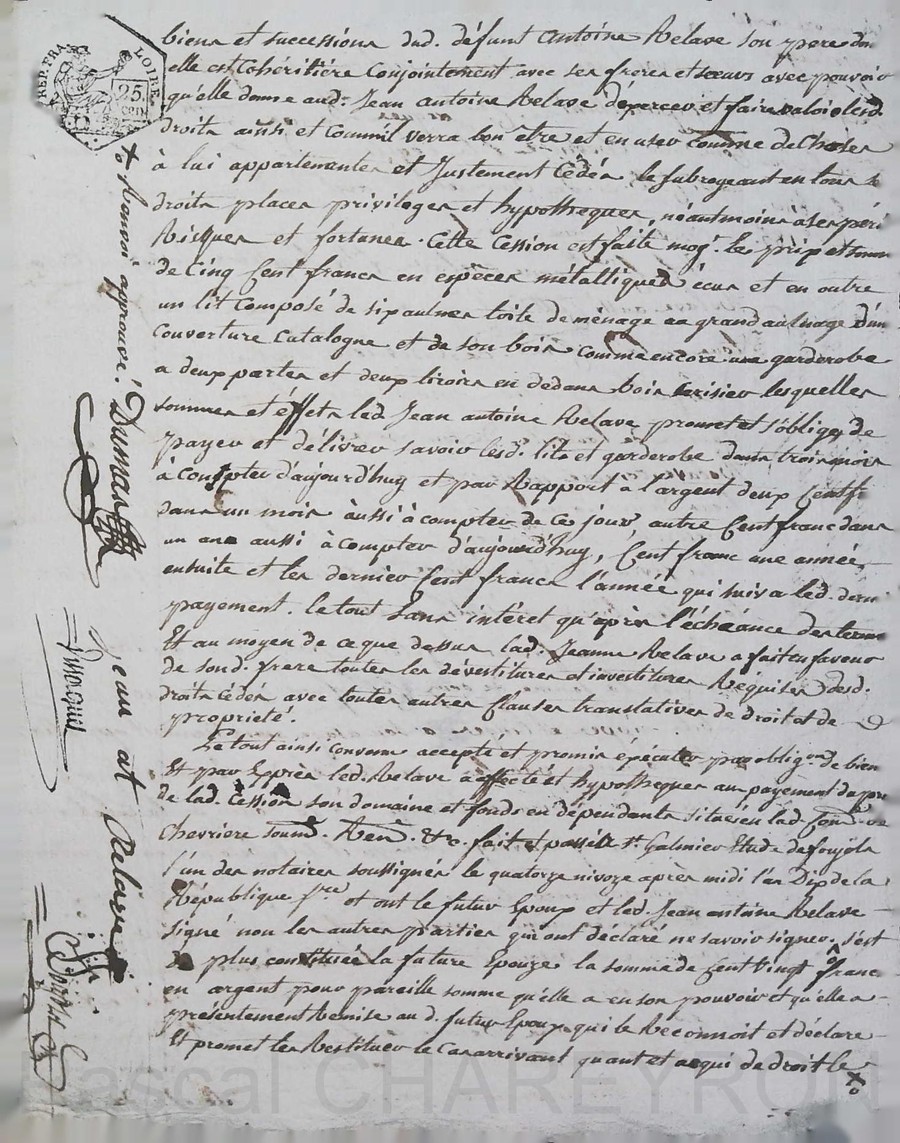 REP. FRA.
LOIRE.
25.
CEN
biens et successions dud. défunt antoine Relave son pere don
elle est Cohéritiére Conjointement avec ses freres et sœurs avec pouvoir
qu'elle donne aud. Jean antoine Relave d'epercev et faire valoir lesd.
droits ainsi et Comm'il verra bon etre et en user comme de Choses
à lui appartenantes et Justement Cédés le subrogeant en tous s
droits places privileges et hypotheques, néautmoins à ses péri
Risques et fortunes. Cette Cession est faite moy. le prix et somm
de Cinq Cent francs en espèces métalliques écus et en outre
un lit Composé de six aulnes toile de ménage au grand aulnage d'un
Couverture Catalogne et de son bois comme encore une garderobe
a deux portes et deux tiroirs en dedans bois serisier lesquelles
sommes et éffets led. Jean antoine Relave promet et s'oblige de
payer et délivrer savoir lesd. lits et garderobe dans trois mois
à Compter d'aujourd'huy et par Rapport a l'argent deux Cent f.
dans un mois aussi à compter de Ce jour, autre Cent franc dans
un ans aussi à Compter d'aujourd'huy, Cent franc une année
ensuite et les dernier Cent francs l'année qui suiva led. derni
payement. le tout sans intéret qu'après l'échéance des terme
Et au moyen de ce que dessus lad. Jeanne Relave a fait en faveur
de sond. frere toutes les dévestitures et investitures Réquises desd.
droits Cédés avec toutes autres Clauses translatives de droit et de
propriété.
Le tout ainsi Convenu accepté et promis éxécuter par oblig.on de bien
Et par Exprès led. Relave à affecté et hypotheques au payement du prix
de lad. Cession son domaine et fonds en dépendants situés en lad. Com.
Chevriere soum. Ren. &c. fait et passé a St. Galmier Etude de
l'un des notaires soussignés le quatorze nivoze après midi l'an Dix de la
République f.se et ont le futur Epoux et led. Jean antoine Relave
signé non les autres parties qui ont déclaré ne savoir signer, s'est
de plus constituée la future Epouze la somme de Cent vingt franc
en argent pour pareille somme qu'elle a en son pouvoir et qu'elle a
présentement Remise au d. futur Epoux qui le Reconnoit et déclare
Et promet les Restituer le Cas arrivant quant et a qui de droit le
Renvoi approuvé. Dumas
Jean at Relave
Pascal CHAREYRON